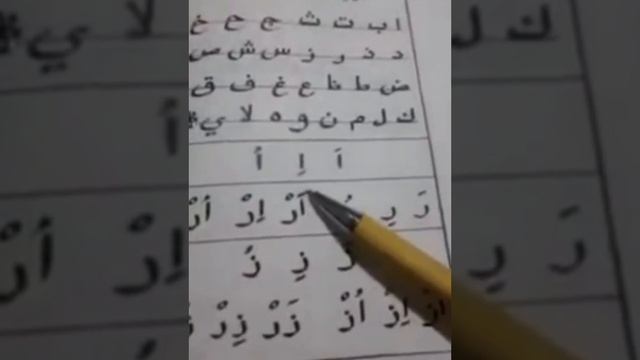 ا ب ت ث ج ح خ
د ذ ر ز س ش ص
ض ط ظ ع غ ف ق
ك ل م ن و ه لا ي
اَ اِ اُ
رَ رِ اَرْ اِرْ اُرْ
زِ زُ
اَزْ اِزْ اُزْ زَرْ زِرْ